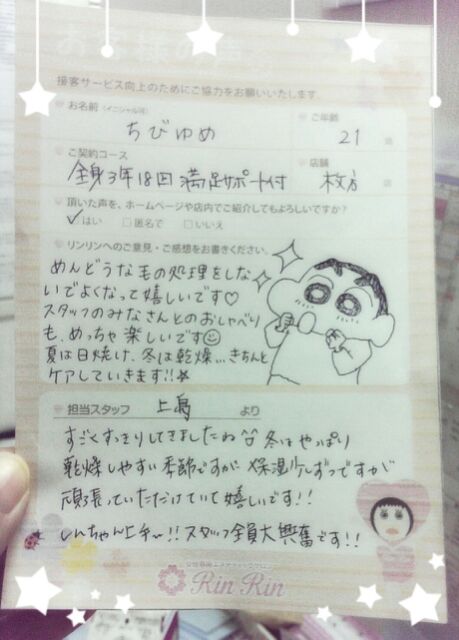 お客様の声
接客サービス向上のためにご協力をお願いいたします。
お名前(イニシャル可)
ちびゆめ
ご年齢
21 歳
ご契約コース
全身3年18回 満足サポート付
店舗
枚方 店
頂いた声を、ホームページや店内でご紹介してもよろしいですか?
✓はい □匿名で □いいえ
リンリンへのご意見・ご感想をお書きください。
めんどうな毛の処理をしな
いでよくなって嬉しいです♡
スタッフのみなさんとのおしゃべり
も、めっちゃ楽しいです☺
夏は日焼け、冬は乾燥...きちんと
ケアしていきます!!★
担当スタッフ 上島 より
すごくすっきりしてきましたね 冬はやっぱり
乾燥しやすい季節ですが 保湿少しずつですが
頑張っていただけていて嬉しいです!!
しんちゃん上手〜!!スタッフ全員大興奮です!!
Rin Rin